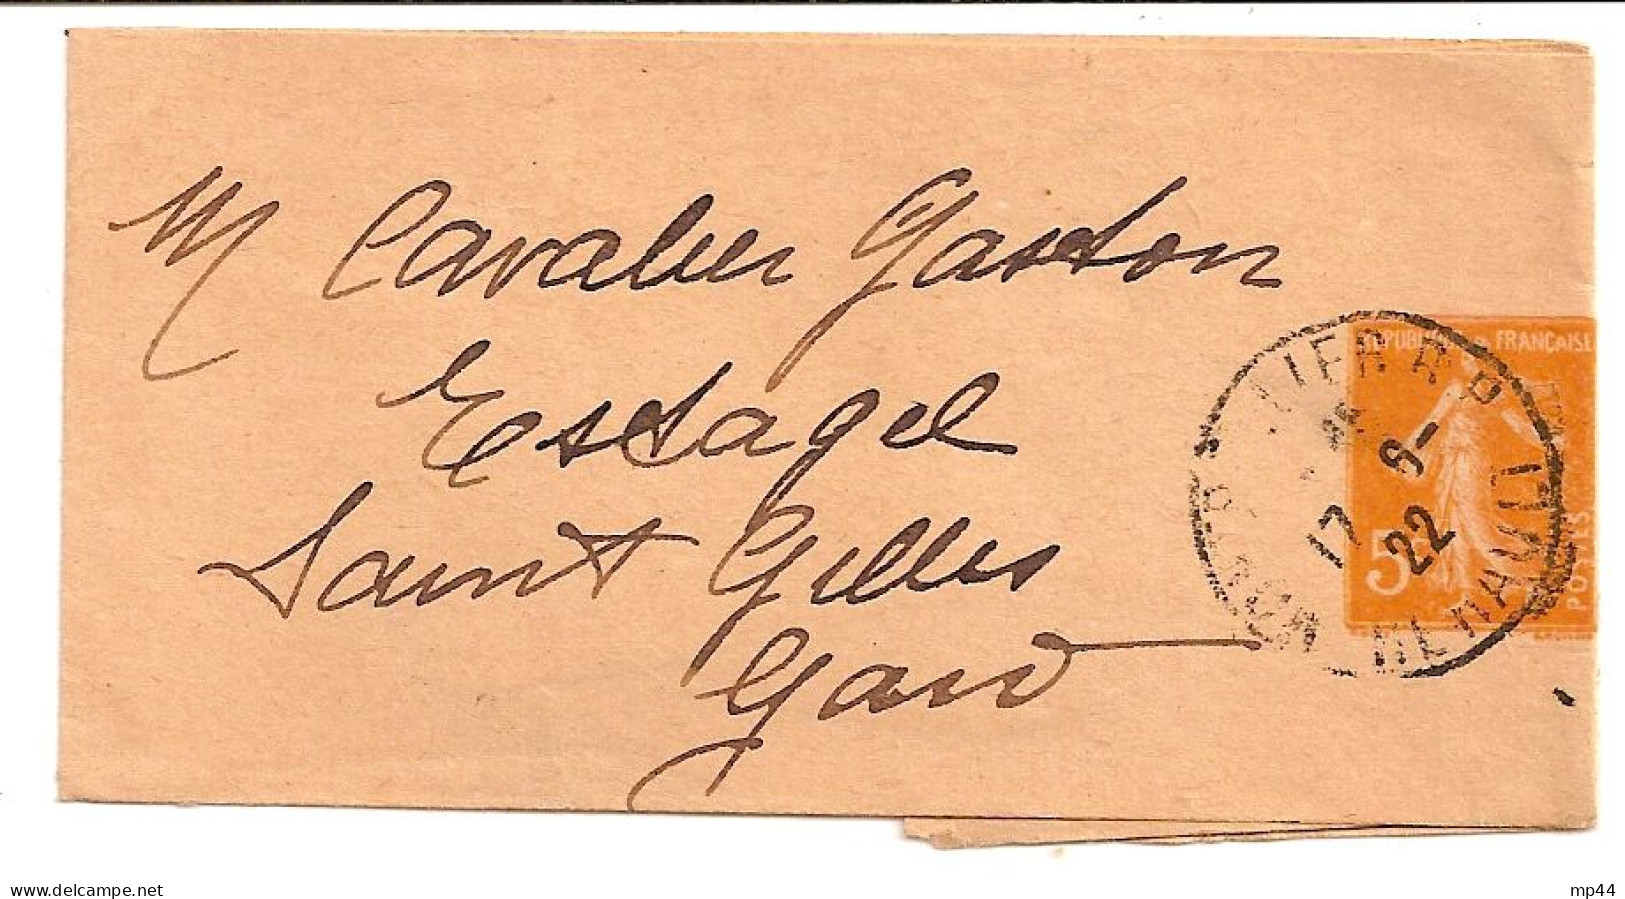 M Cavalier Gaston
Estagel
Saint Gilles
Gard
REPUBLIQUE FRANÇAISE
5c
POSTES
17 8-
22
www.delcampe.net
mp44